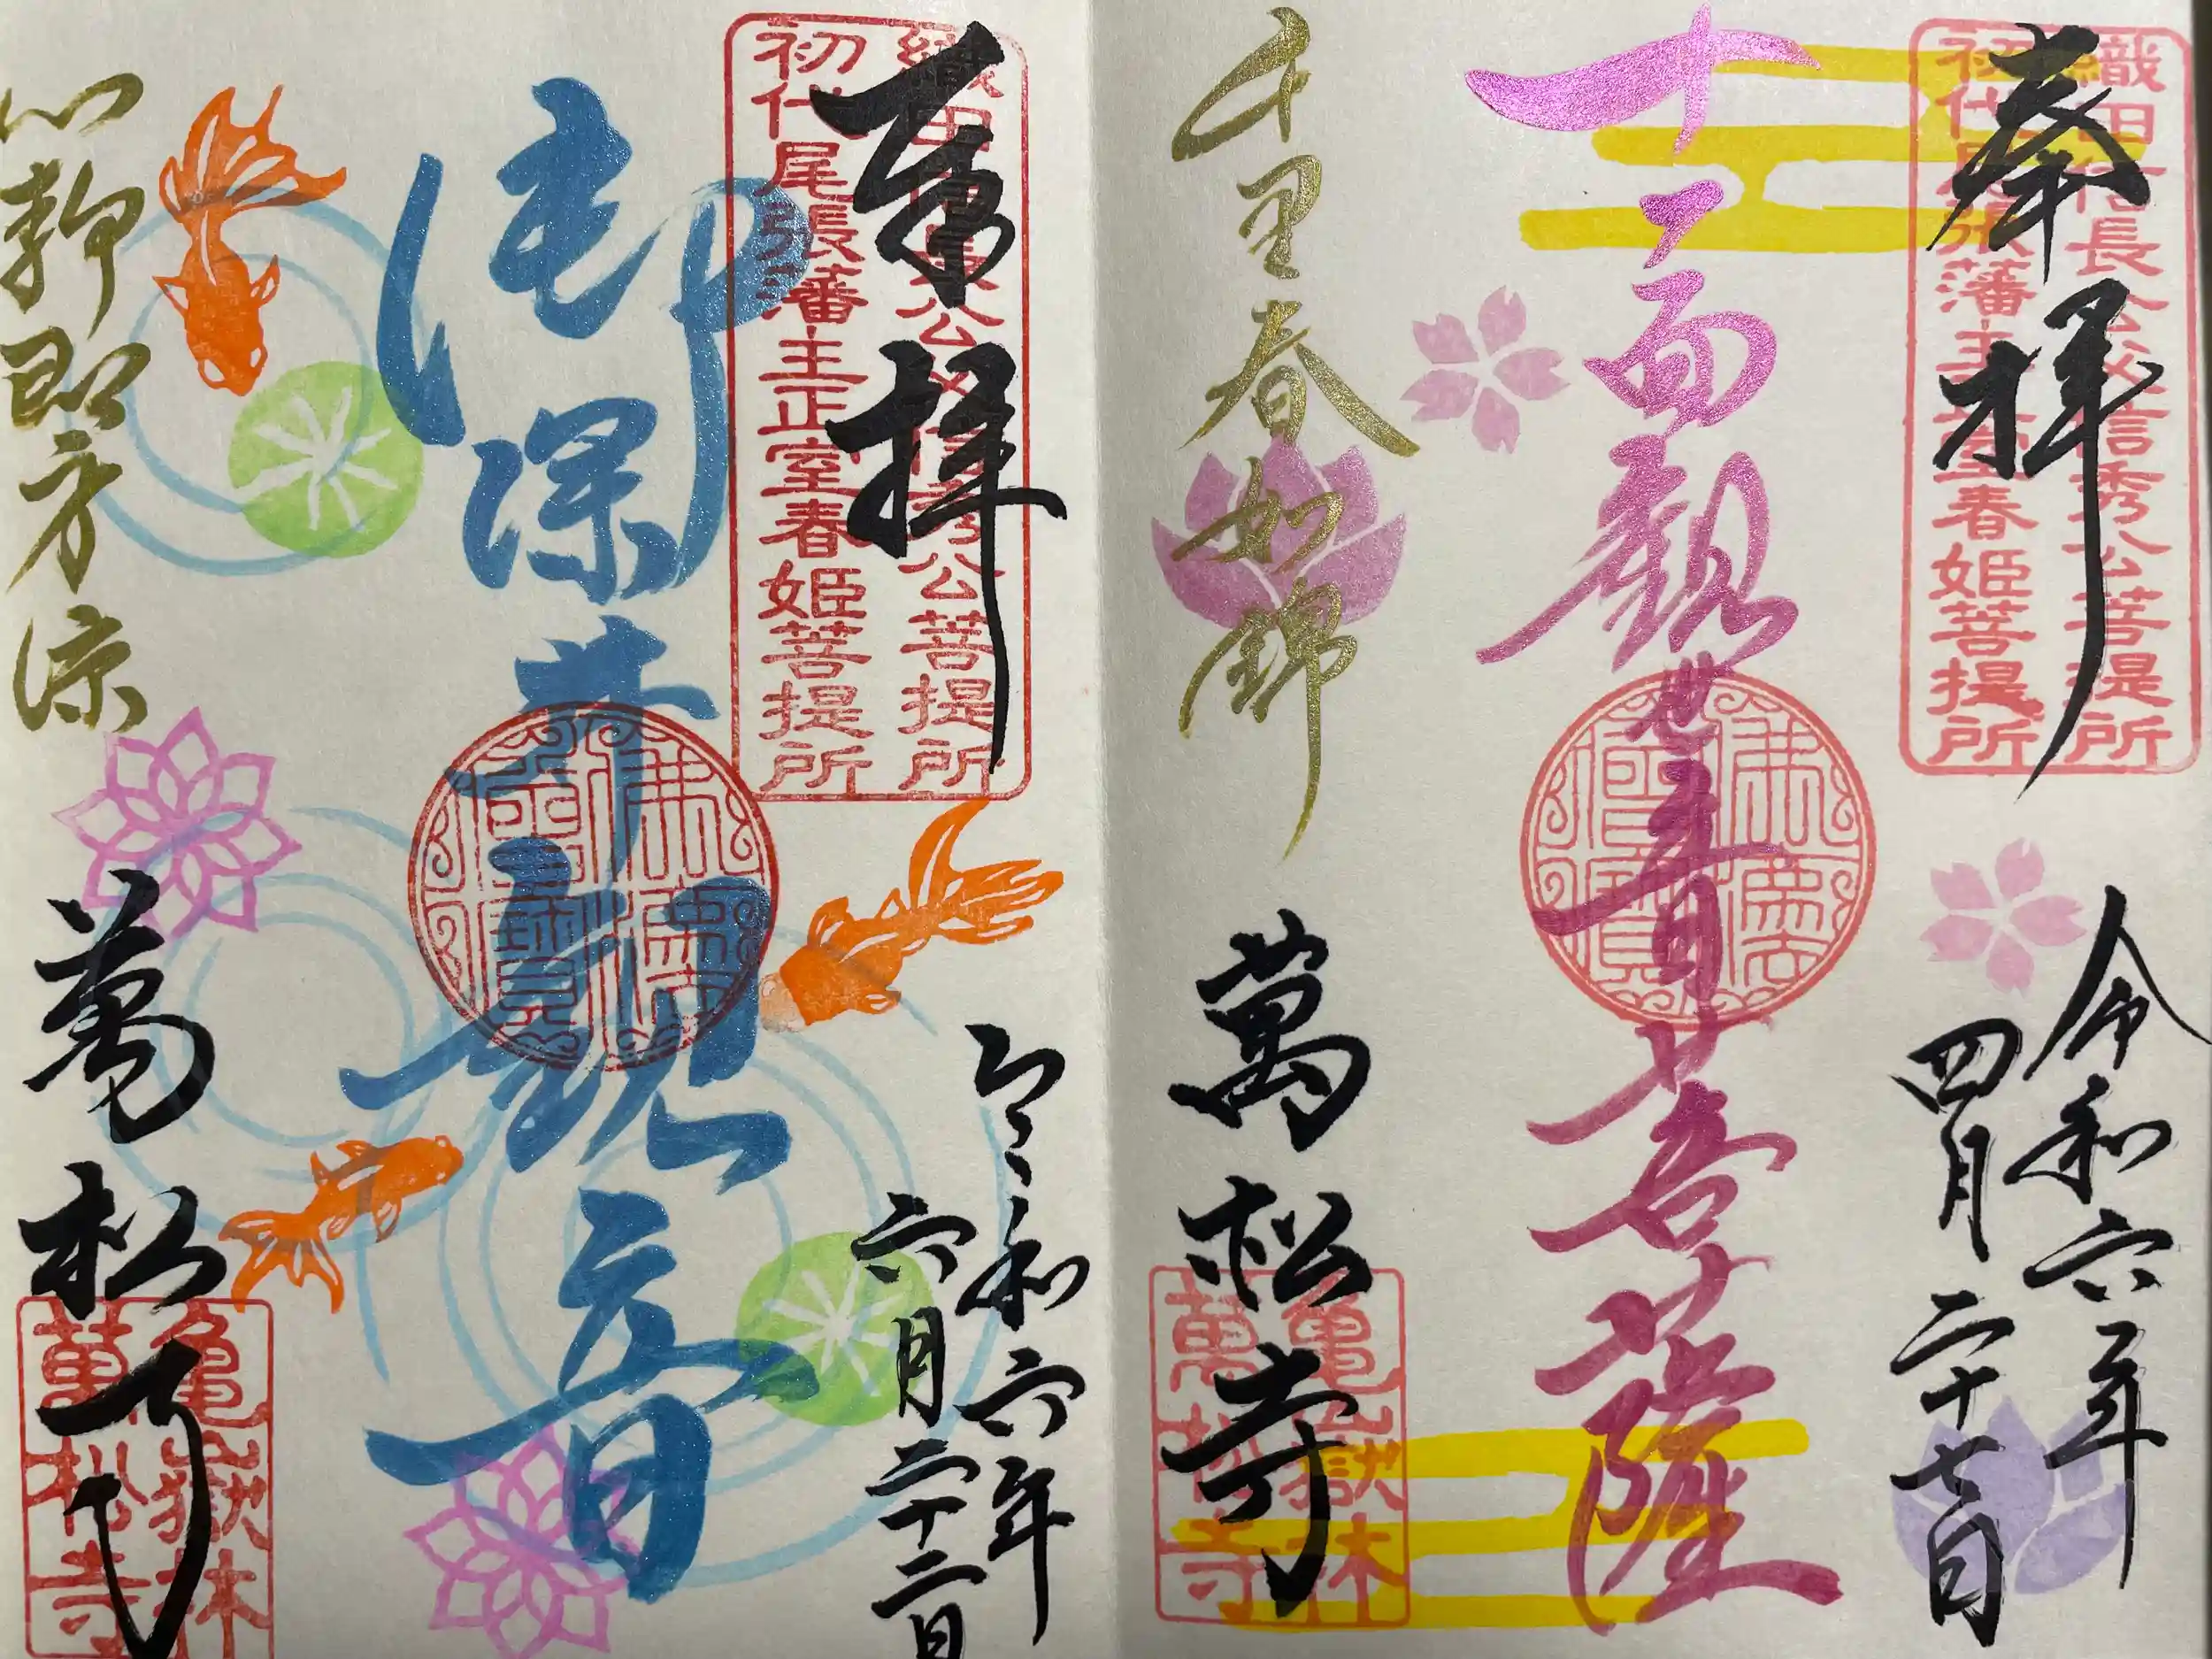 奉拝
織田信長公父信秀公菩提所
初代尾張藩主正室春姫菩提所
令和六年
四月二十七日
十一面観世音菩薩
佛灋
僧寶
千里春如錦
萬松寺
亀嶽林
萬松寺
奉拝
織田信長公父信秀公菩提所
初代尾張藩主正室春姫菩提所
令和六年
六月二十二日
御深井観音
佛灋
僧寶
心静即身涼
萬松寺
亀嶽林
萬松寺